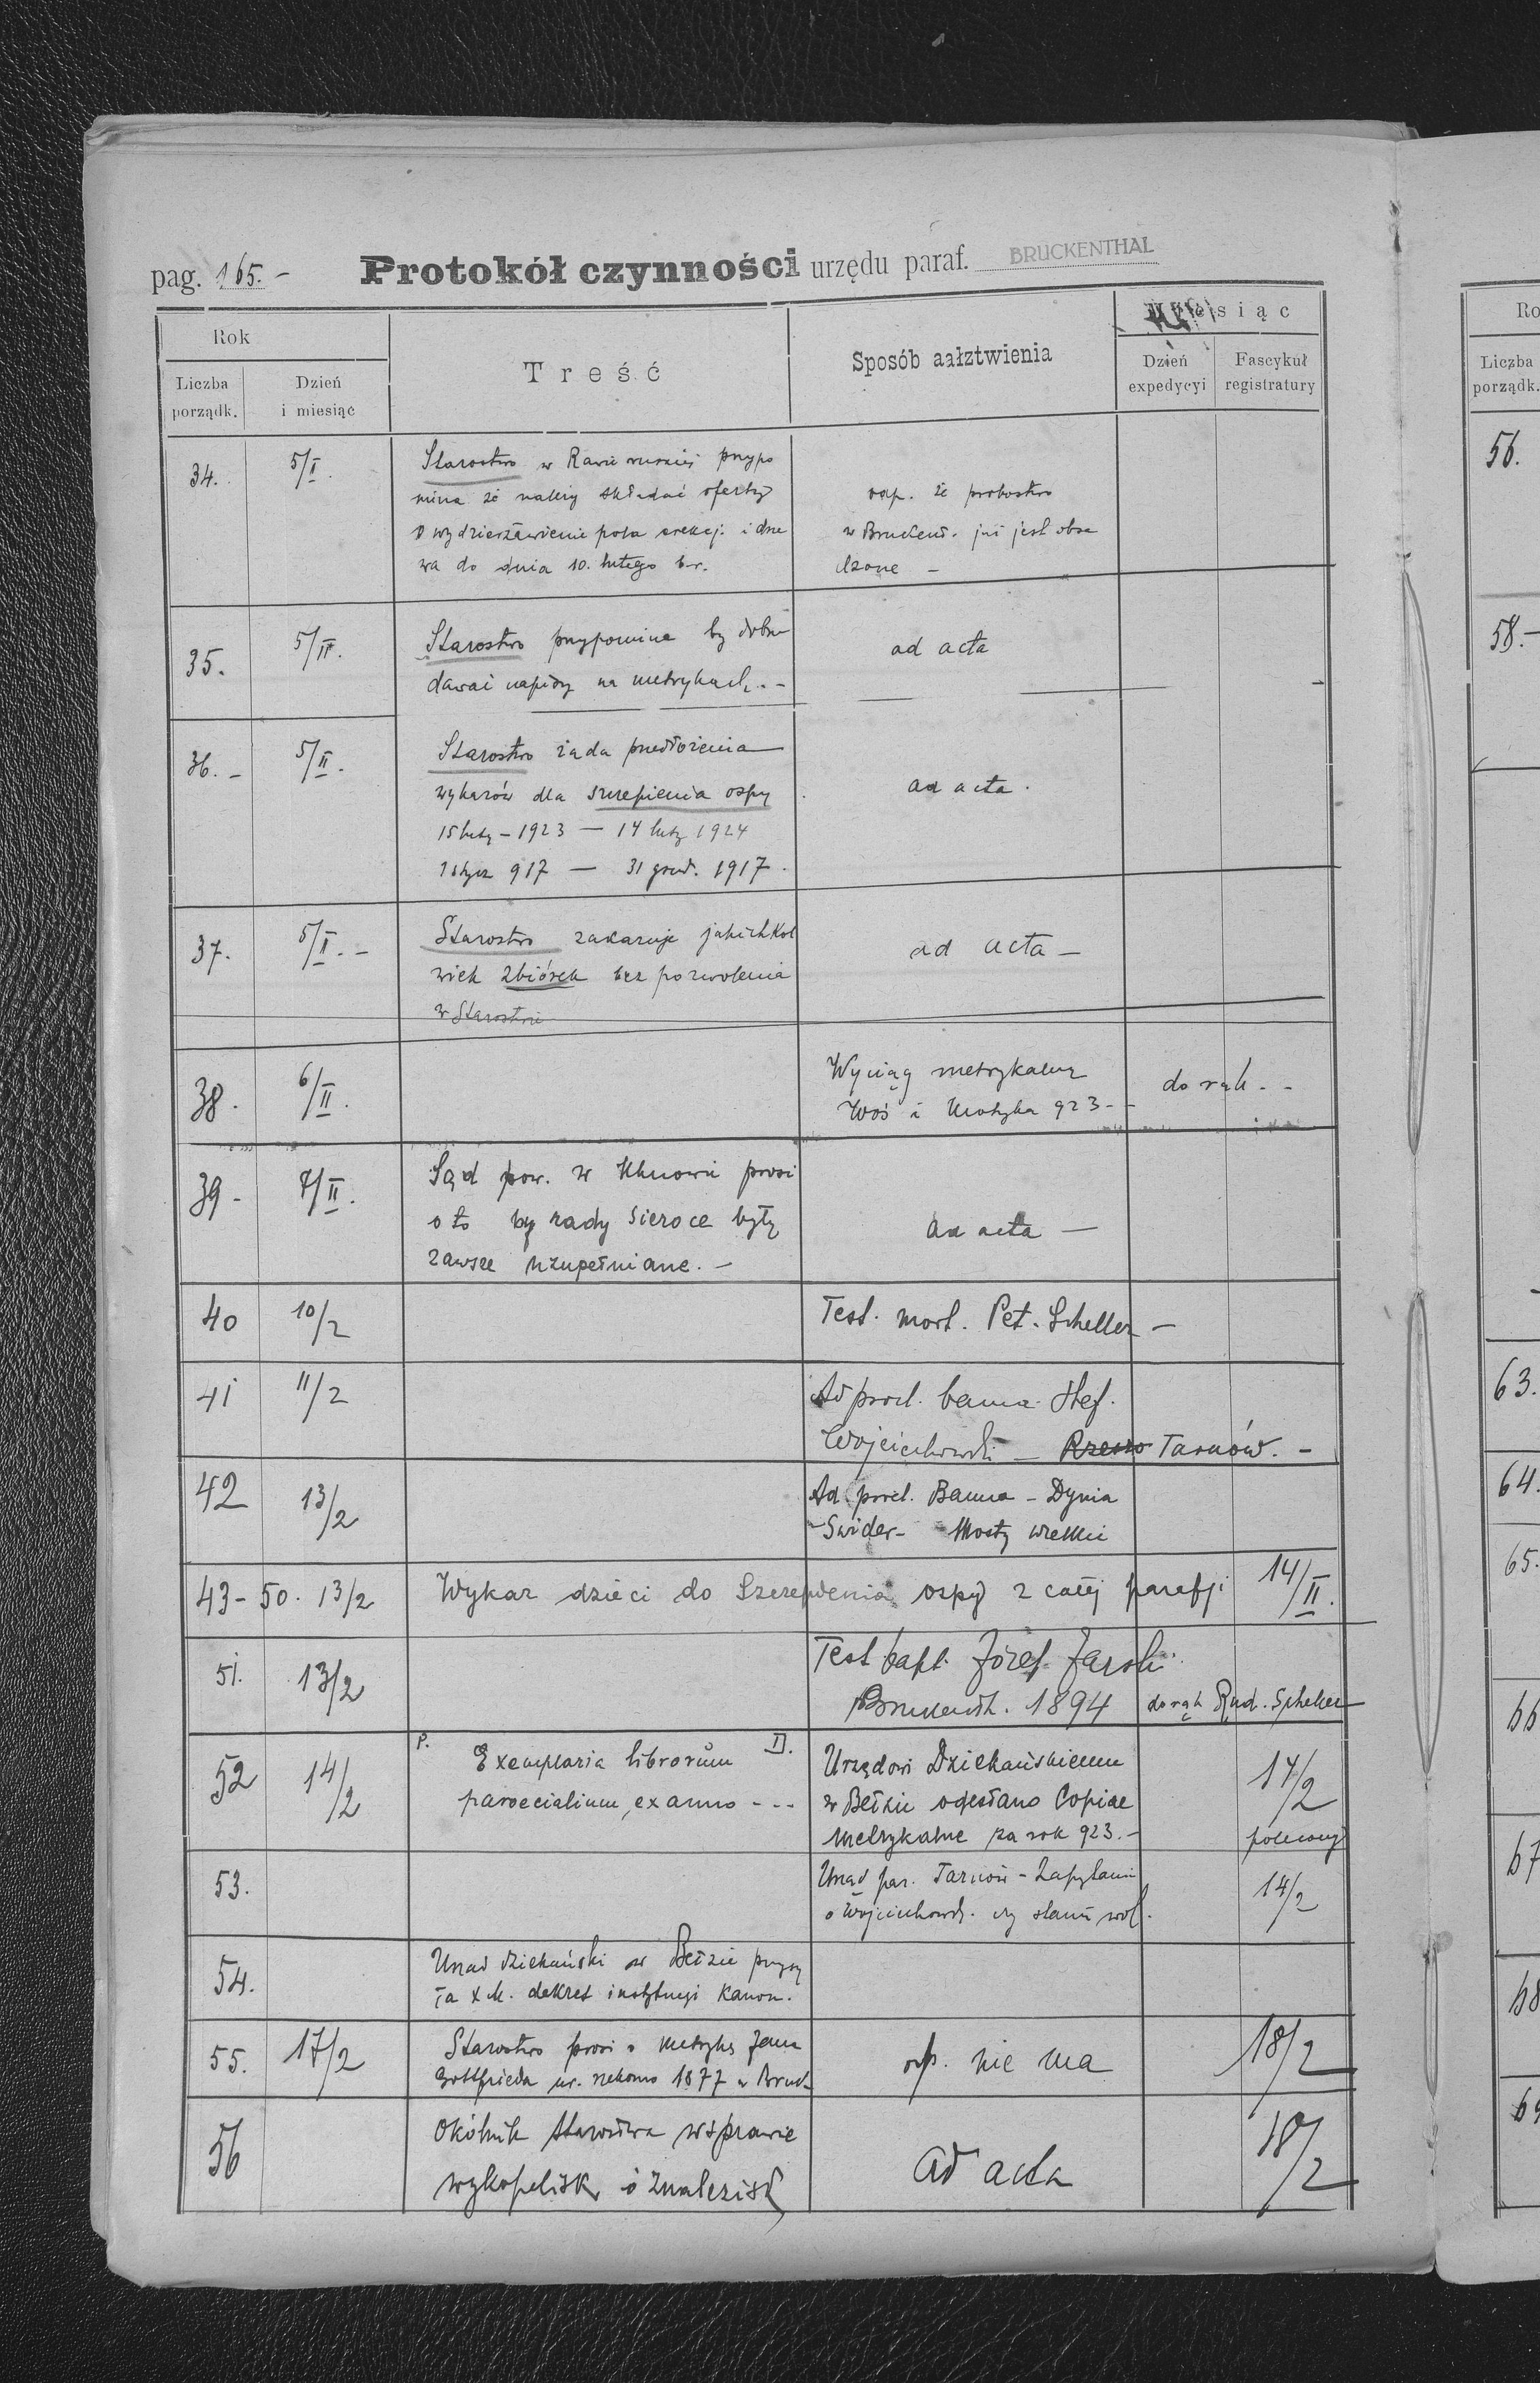 pag. 165.-
Protokół czynności urzędu paraf. BRUCKENTHAL
Rok
Treść
Sposób aałztwienia
Miesiąc
Liczba porządk.
Dzień i miesiąc
Dzień expedycyi
Fascykuł registratury
34. 5/I.
Starostwo w Rawie ruskiej przypo
mina że należy składać oferty
o wydzierżawienie pola erekcj. i drze
wa do dnia 10. lutego b.r.
odp. że probostwo
w Bruckent. już jest obsa
dzone -
35. 5/II.
Starostwo przypomina by
dawać napisy na metrykach. -
ad acta
36. - 5/II.
Starostwo żąda przedłożenia
wykazów dla szczepienia ospy
15 luty - 1923 — 14 luty 1924
1 stycz 917 — 31 grud. 1917.
ad acta.
37. 5/I. -
Starostwo zakazuje jakichkol
wiek zbiórek bez pozwolenia
w Starostwie
ad acta -
38. 6/II.
Wyciąg metrykalny
Woś i Motyka 923 - -
do rąk. - -
39 - 7/II.
Sąd pow. w Uhnowie prosi
o to by rady sieroce były
zawsze uzupełniane. -
ad acta —
40 10/2
Test. mort. Pet. Scheller -
41 11/2
Ad procl. banna. Stef.
Wojciechowski - Rzeszo Tarnów. -
42 13/2
Ad procl. Banna - Dynia
- Swider - Mosty wielkie
43 - 50. 13/2 Wykaz dzieci do Szczepienia ospy z całej parafji 14/II.
51. 13/2
Test bapt. Józef Jarski
Bruckenth. 1894 do rąk Rud. Scheller
52 14/2
P. Exemplaria librorum D.
paroecialium, ex anno - - -
Urzędowi Dziekańskiemu
w Bełzie odesłano Copiae
metrykalne za rok 923. -
14/2
polecony
53.
Urząd par. Tarnów - Zapytanie
o Wojciechowsk. czy stanu wol.
14/2
54.
Urząd dziekański w Bełzie przysy
ła x M. dekret instytucji kanon.
55. 17/2
Starostwo prosi o metrykę Jana
Gottfrieda ur. rzekomo 1877 w Bruck-
odp. nie ma
18/2
56
Okólnik starostwa w sprawie
wykopalisk i znalezisk
ad acta
18/2
Ro
Liczba
porządk.
56.
58. -
63.
64.
65.
66
67
68
69